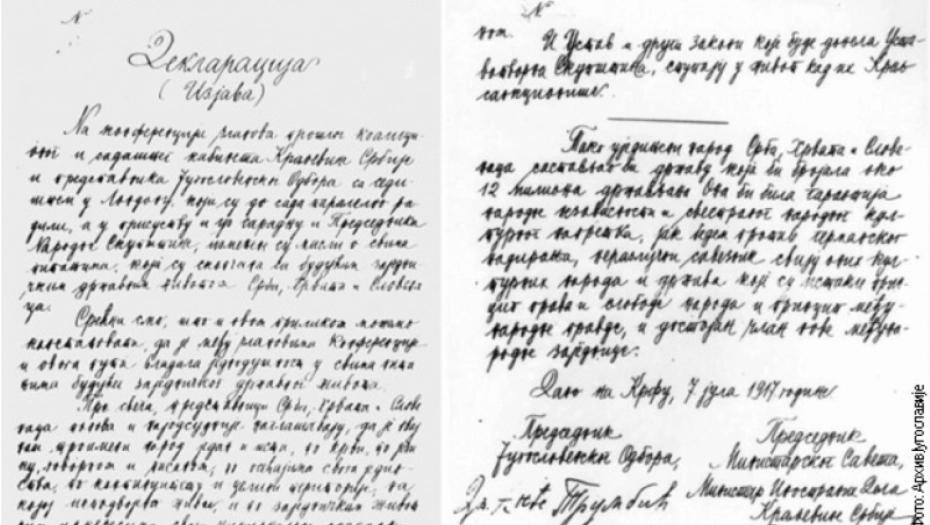 Декларација
(Изјава)
На конференцији чланова прошлог коалицио-
ног и садашњег кабинета Краљевине Србије
и представника Југословенског Одбора са седи-
штем у Лондону, који су до сада паралелно ра-
дили, а у присуству и уз сарадњу и Председника
Народне Скупштине, измењене су мисли о свима
питањима, која су скопчана са будућим заједни-
чким државним животом Срба, Хрвата и Словена-
ца.
Срећни смо, што и овом приликом можемо
констатовати, да је међу члановима Конференције
и овога пута владала једнодушност у свима пита-
њима будућег заједничког државног живота.
Пре свега, представници Срба, Хрвата и Слове-
наца понова и најодсудније наглашавају, да је овај
наш троимени народ један и исти, по крви, по јези-
ку, говорном и писаном, по осећајима свога једин-
ства, по континуитету и целини територије, на
којој неподвојено живи, и по заједничким животним
ном.
И Устав и други закони које буде донела Уста-
вотворна Скупштина, ступају у живот кад их Краљ
санкционише.
Тако уједињен народ Срба, Хрвата и Слове-
наца састављао би државу која би бројала око
12 милиона држављана. Она би била гаранција
народне независности и свестраног народног кул-
турног напретка, јак бедем против германског
надирања, неразлучни савезник свију оних кул-
турних народа и држава који су истакли прин-
цип права и слободе народа и принцип међу-
народне правде, и достојан члан нове међуна-
родне заједнице.
Дано на Крфу, 7 јула 1917 године
Председник
Југословенског Одбора,
Др Анте Трумбић
Председник
Министарског Савета,
Министар Иностраних Дела
Краљевине Србије
Фото: Архив Југославије